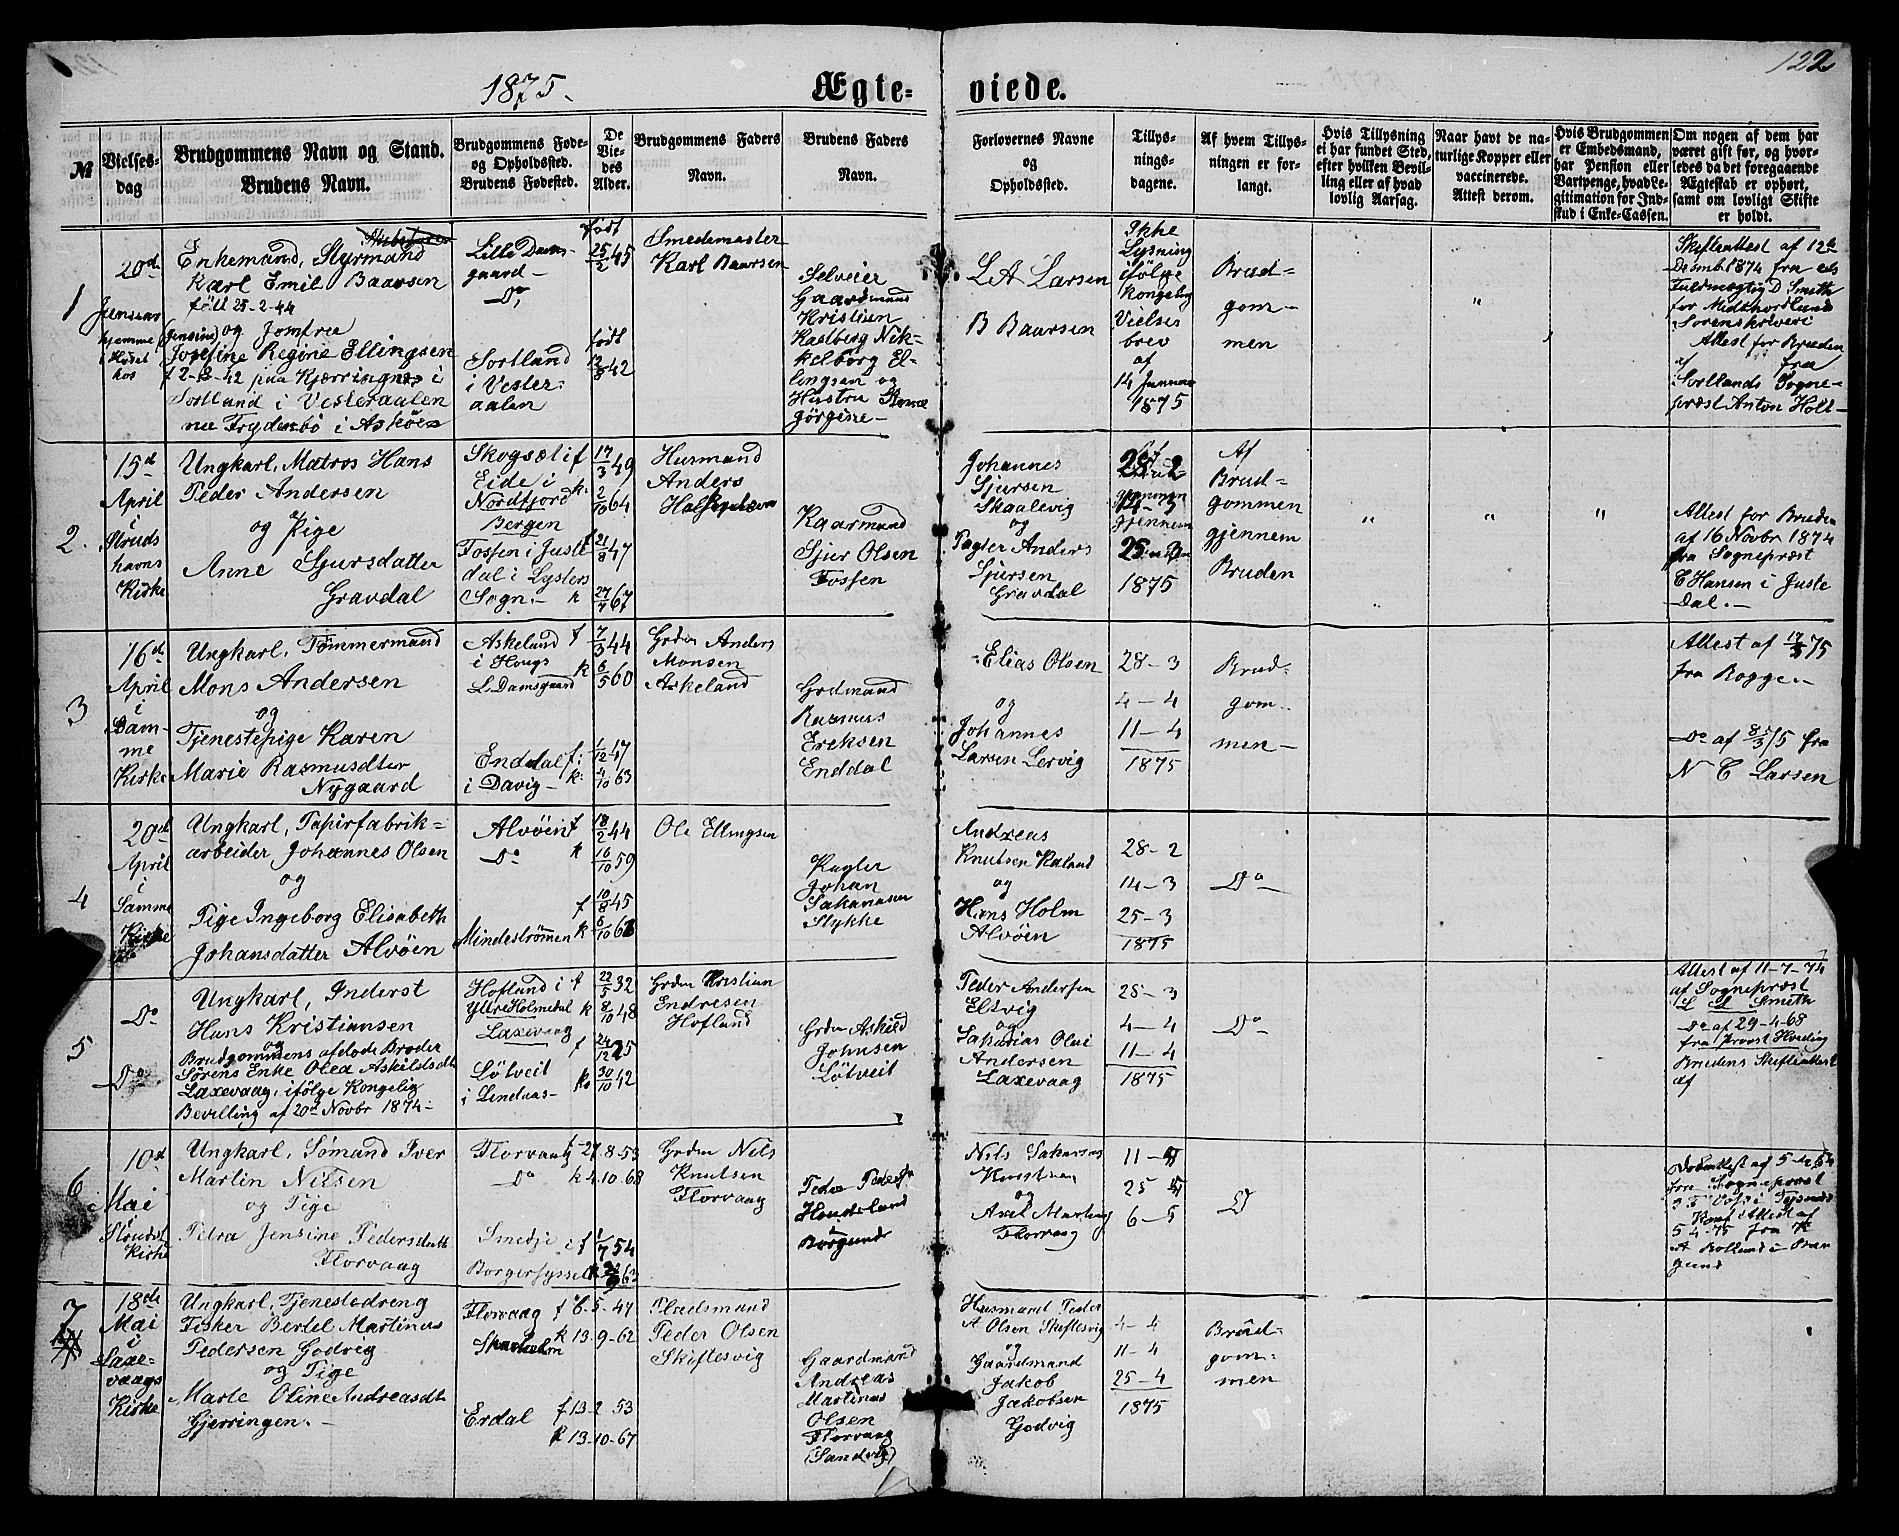 122
1875.
Ægteviede.
№
Vielsesdag
Brudgommens Navn og Stand.
Brudens Navn.
Brudgommens Føde-
og Opholdssted.
Brudens Fødested.
De
Vie-
des
Alder.
Brudgommens Faders
Navn.
Brudens Faders
Navn.
Forlovernes Navne
og
Opholdssted.
Tillys-
nings-
dagene.
Af hvem Tillys-
ningen er for-
langt.
Hvis Tillysning
ei har fundet Sted,
efter hvilken Bevil-
ling eller af hvad
lovlig Aarsag.
Naar havt de na-
turlige Kopper eller
vaccinerede.
Attest derom.
Hvis Brudgommen
er Embedsmand,
har Pension eller
Vartpenge, hvad Le-
gitimation for Ind-
skud i Enke-Cassen.
Om nogen af dem har
været gift før, og hvor-
ledes da det foregaaende
Ægteskab er ophørt,
samt om lovligt Skifte
er holdt.
1
20de
Januar
hjemme i
Huset
hos
Enkemand, Styrmand
Karl Emil Baarsen
født 25-2-44
(Jensine) og Jomfru
Josefine Regine Ellingsen
f 2-8-42 paa Kjerringnes i
Sortland i Vesteraalen
nu Frydenbö i Asköen
Lille Dams-
gaard
Do
Sortland
i Vester-
aalen
født
25/2 45
født
12/8 42
Smedemester
Karl Baarsen
Selveier
Gaardmand
Kristian
Kastberg Nik-
kelborg El-
lingsen og
Hustru
Jörgine
L A Larsen
B Baarsen
Ikke
Lysning
ifölge
kongelig
Vielses
brev
af
14 Januar
1875
Brud-
gom-
men
"
Skifteattest af 12te
Desmb 1874 fra
Fuldmægtig D Smith
for Midthordlands
Sorenskriveri
Attest for Bruden
af fra
Sortlands Sogne-
præst Anton Holt
2.
15de
April
i
Struds
havns
Kirke
Ungkarl, Matros Hans
Peder Andersen
og Pige
Anne Sjursdatter
Gravdal
Skogsæt i f
Eide i k.
Nordfjord
Bergen
Fossen i Juste f
dal i Lysters
Sogn.- k
17/3 49
2/10 64
21/8 47
27/7 67
Husmand
Anders
Kaarmand
Sjur Olsen
Fossen
Johannes
Sjursen
Skaalevig
og
Pagter Anders
Sjursen
Gravdal
28-2
14-3
25-3
1875
Af
Brud-
gommen
gjennem
Bruden
"
"
"
Attest for Bruden
af 16 Novbr 1874
fra Sognepræst
C Hansen i Juste
Dal.-
3
16de
April
i
Sam-
me
Kirke
Ungkarl, Tømmermand
Mons Andersen
og
Tjenestepige Karen
Marie Rasmusdtter
Nygaard
Askeland f
i Hougs k
L. Damsgaard
Enddal f:
i Davig- k:
7/3 44
6/5 60
1/12 47
4/10 63
Grdm Anders
Monsen
Askeland
Grdmand
Rasmus
Ereksen
Enddal
Elias Olsen
og
Johannes
Larsen Lervig
28-3
4-4
11-4
1875
Brud-
gom-
men-
Attest af 17/3 75
fra Rogge.-
Do af 8/3 75 fra
N C Larsen
4
20de
April
i
Samme
Kirke
Ungkarl, Papirfabrik=
arbeider Johannes Olsen
og
Pige Ingeborg Elisabeth
Johansdatter Alvöen
Alvöen f
Do k
f
Mindeströmmen k
18/2 44
16/10 59
10/8 45
6/10 61
Ole Ellingsen
Pagter
Johan
Sakariasen
Stykke
Andreas
Knutsen Kaland
og
Hans Holm
Alvöen
28-2
14-3
25-3
1875
Do
5
Do
Do
Ungkarl, Inderst
Hans Kristiansen
og
Brudgommens afdøde Broder
Sörens Enke Olea Askildsdtr
Laxevaag, ifölge Kongelig
Bevilling af 20de Novbr 1874-
Hofland i f
Ytre Holmedal k
Laxevaag
f
Lötveit k
i Lindaas-
22/5 32
8/10 48
24/12 25
30/10 42
Grdm Kristian
Endresen
Hofland
Grdm Askild
Johnsen
Lötveit
Peder Andersen
Eltvig
og
Sakarias Olai
Andersen
Laxevaag
25-3
4-4
11-4
1875
Do
Attest af 11-7-74
af Sognepræst
Smith
Do af 29-4-68
fra Provst Hvoding
Brudens Skifteattest
af
6
10de
Mai
i
Strudsh
Kirke
Ungkarl, Sömand Iver
Martin Nilsen
og Pige
Petra Jensine Pedersdatter
Florvaag
Florvaag
Do
Smedje i f
Borgersyssel k
f-27-8-53
k 4-10-68
1/7 54
Grdm Nils
Knutsen
Florvaag
Peder Pedersen
Borgund
Nils Sakarias
og
Axel Martin
Florvaag
11-4
25-4
6-5
D
5-4-75 fra K
A Rolland i Bor
gund
7
18de
Mai
i
Laxe-
vaags
Kirke
Ungkarl, Tjenestedreng
Fisker Bertel Martinus
Pedersen Godvig
og Pige
Marte Oline Andreasdtr
Gjerringen.-
Florvaag f 6-5-47
k 13-9-62
Erdal f 13-2-53
k 13-10-67
Pladsmand
Peder Olsen
Skiftesvig
Gaardmand
Andreas
Martinus
Olsen
Florvaag
(Sandvig)
Husmand Peder
A Olsen Skiftesvig
og
Gaardmand
Jakob
Jakobsen
Godvig
4-4
11-4
25-4
1875
Brud-
gom-
men